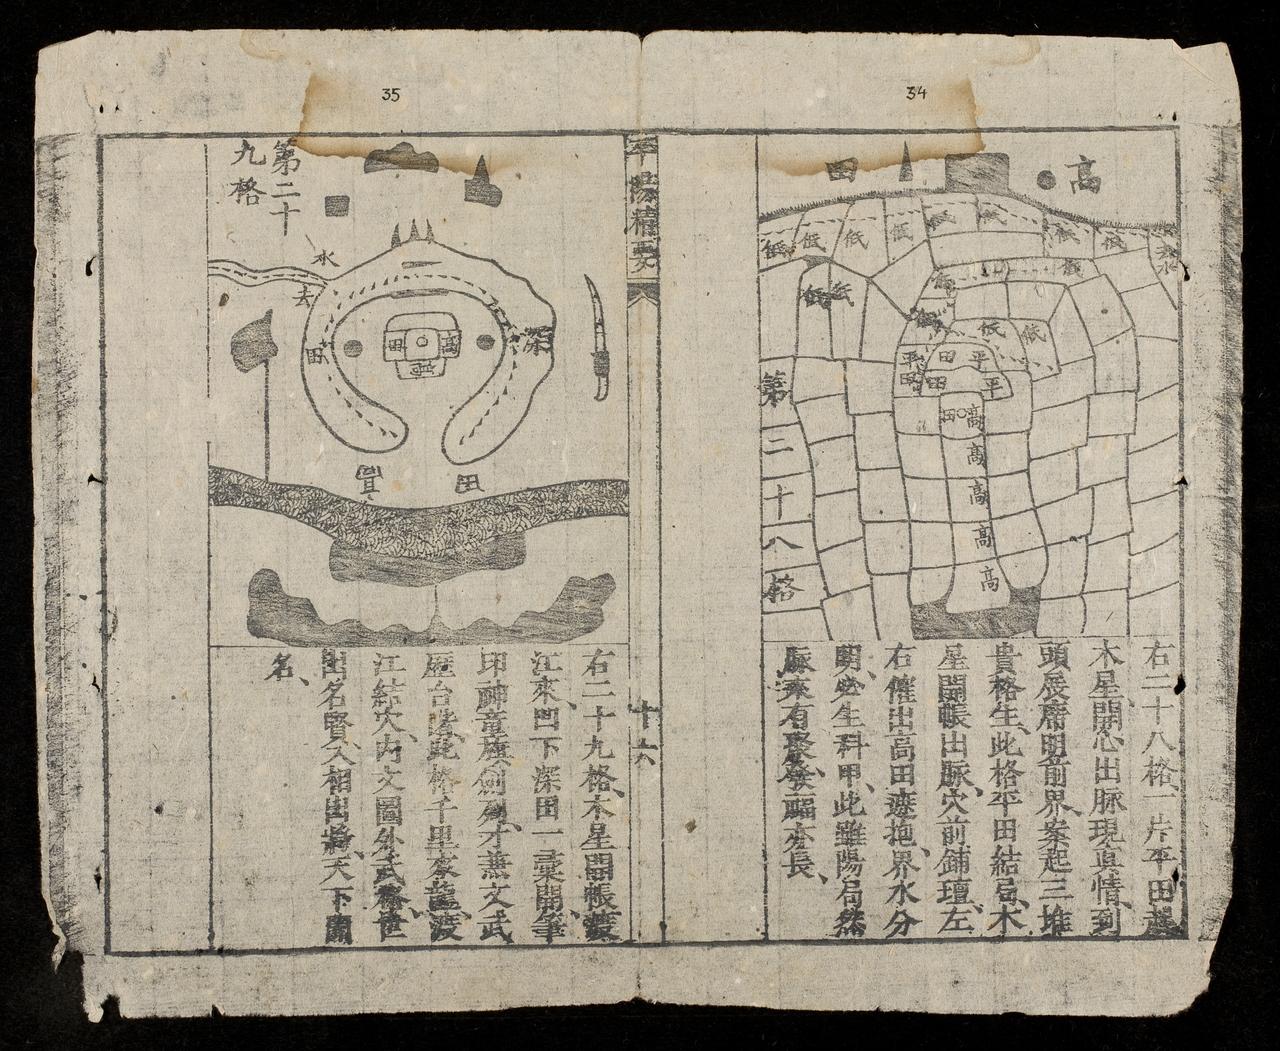 34
高
田
低
低
低
低
低
低
低
低
低
低
低
低
低
平
田
平
田
田
平
田
高
高
高
高
高
第二十八格
右二十八格一片平田起
木星開心出脉現真情到
頭展席明前界案起三堆
貴格生此格平田結局木
星開帳出脉穴前鋪壇左
右催出高田遮抱界水分
明必生科甲此雖陽局然
脉來有聚發福亦長
平陽精要
十六
35
第二十
九格
水
去
深
田
田
高
田
右二十九格木星開帳渡
江來凹下深田一裹開筆
印神童旗劍列才兼文武
歷台諸此格千里來龍渡
江結穴内文圖外武格世
出名賢入相出將天下聞
名